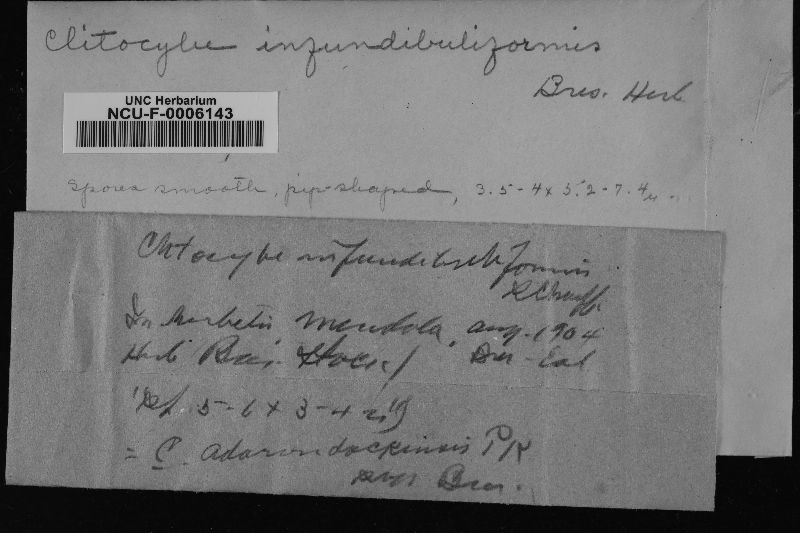 Clitocybe infundibuliformis
Bres. Herb
UNC Herbarium
NCU-F-0006143
Spores smooth, pip-shaped, 3.5-4 x 5.2-7.4 µ
Clitocybe infundibuliformis
Schaeff
In herbetis Mendola, Aug. 1904
Herb Bres.
5-6 x 3-4
= C. adirondackensis Pk
Bres.